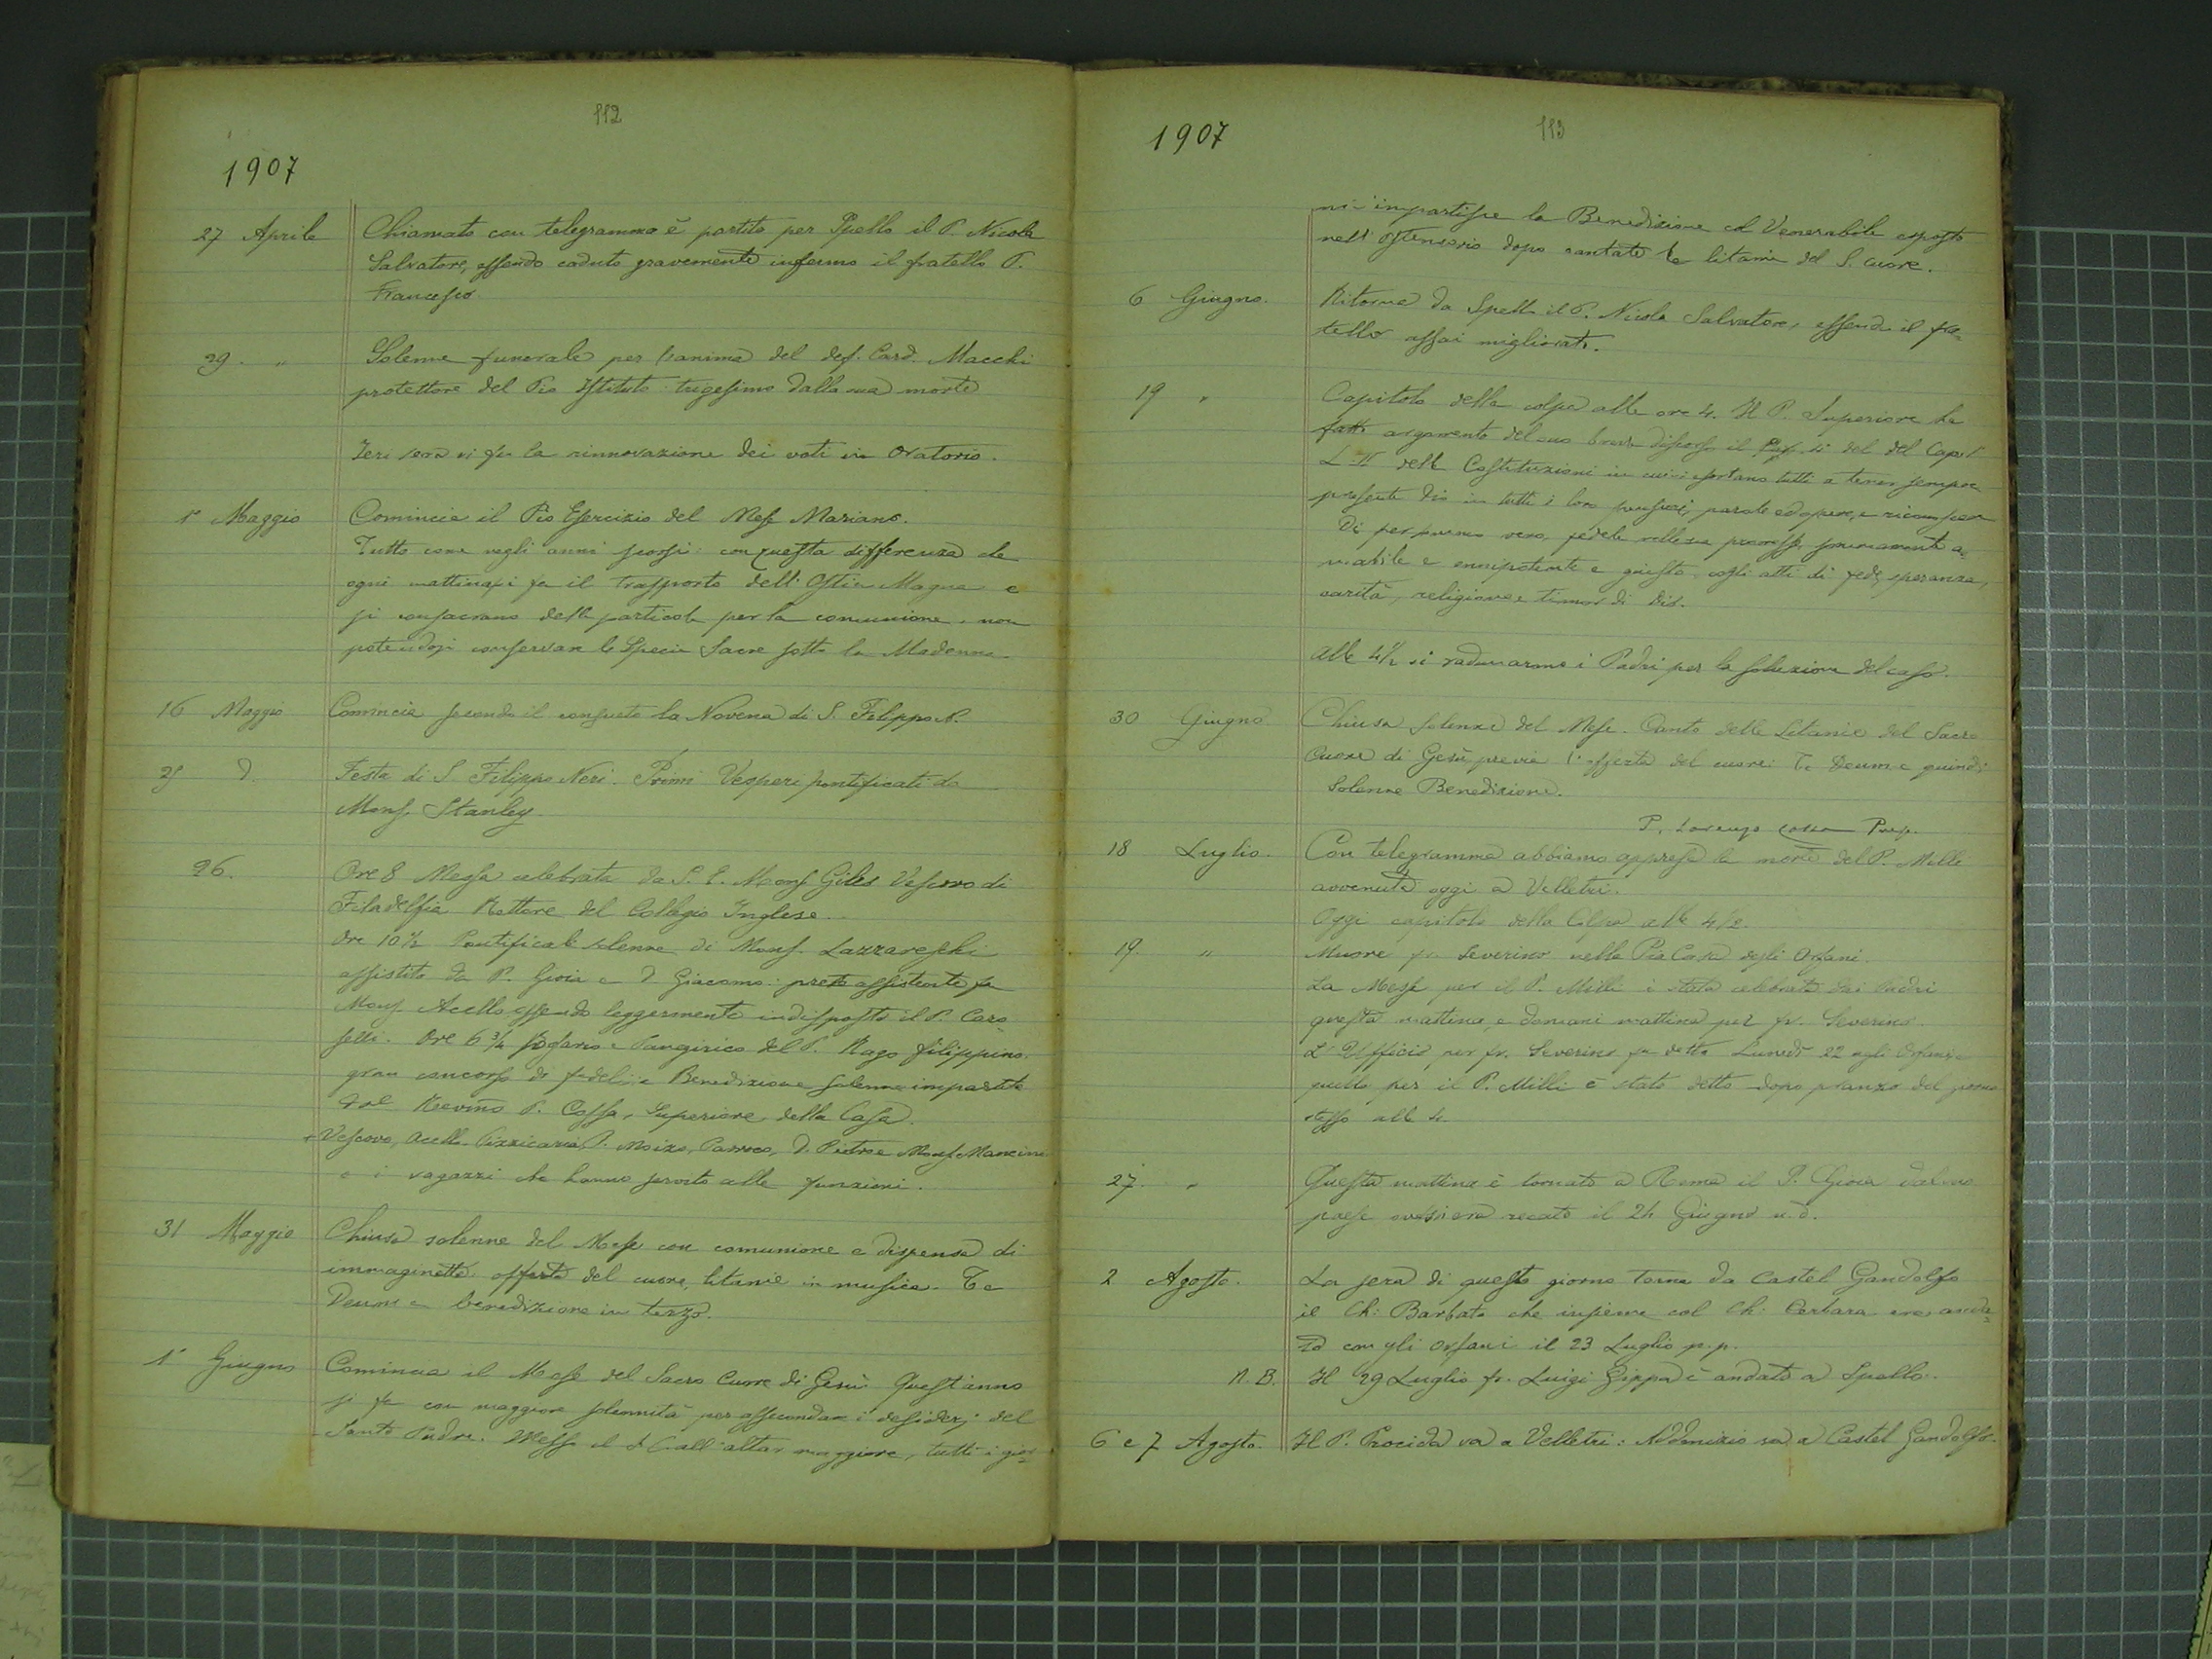 112
1907
27 Aprile Chiamato con telegramma è partito per Spello il P. Nicola
Salvatore, essendo caduto gravemente infermo il fratello P.
Francesco.
29. " Solenne funerale per l'anima del def. Card. Macchi
protettore del Pio Istituto: trigesimo dalla sua morte
Ieri sera si fe' la rinnovazione dei voti in Oratorio.
1° Maggio Comincia il Pio Esercizio del Mese Mariano.
Tutto come negli anni scorsi: con questa differenza che
ogni mattina si fa il trasporto dell'Ostia Magna e
si consacrano delle particole per la comunione, non
potendosi conservare le Specie Sacre sotto la Madonna.
16 Maggio Comincia secondo il consueto la Novena di S. Filippo N.
25 D. Festa di S. Filippo Neri. Primi Vesperi pontificati da
Mons. Stanley.
26. Ore 8 Messa celebrata da S. E. Mons. Giles Vescovo di
Filadelfia Rettore del Collegio Inglese.
Ore 10½ Pontificale solenne di Mons. Lazzareschi
assistito da P. Gioia e D. Giacomo: prete assistente fu
Mons. Acelli essendo leggermente indisposto il P. Caro
selli. Ore 6¾ Rosario e Panegirico del P. Rago filippino.
gran concorso di fedeli, e Benedizione solenne impartita
dal Revmo P. Cossa, Superiore della Casa.
+ Vescovo, Acelli, Pizzicaria, P. Moizo, Parroco, D. Pietro e Mons. Mancini
e i ragazzi che hanno servito alle funzioni.
31 Maggio Chiusa solenne del Mese con comunione e dispensa di
immaginette, offerta del cuore, litanie in musica. Te
Deum e benedizione in terzo.
1° Giugno Comincia il Mese del Sacro Cuore di Gesù. Quest'anno
si fa con maggiore solennità per assecondare i desiderj del
Santo Padre. Messo il S. C. all'altar maggiore, tutti i gior=
1907
113
ni s'impartisce la Benedizione col Venerabile esposto
nell'ostensorio dopo cantate le litanie del S. Cuore.
6 Giugno. Ritorna da Spello il P. Nicola Salvatore, essendo il fra=
tello assai migliorato.
19 " Capitolo della colpa alle ore 4. Il P. Superiore ha
fatto argomento del suo breve discorso il 4° del del Cap.
delle Costituzioni in cui si esortano tutti a tener sempre
presente Dio in tutti i loro pensieri, parole ed opere, e
vero, fedele nelle sue promesse, sommamente a=
mabile e onnipotente e giusto, cogli atti di fede, speranza,
carità, religione e timor di Dio.
Alle 4½ si radunarono i Padri per la soluzione del caso.
30 Giugno Chiusa solenne del Mese. Canto delle Litanie del Sacro
Cuore di Gesù previa l'offerta del cuore: Te Deum e quindi
Solenne Benedizione.
P. Lorenzo Cossa Prep.
18 Luglio. Con telegramma abbiamo appreso la morte del P. Milli
avvenuta oggi a Velletri.
Oggi capitolo della Colpa alle 4½.
19. " Muore fr. Severino nella Pia Casa degli Orfani.
La Messa per il P. Milli è stata celebrata dai Padri
questa mattina, e domani mattina per fr. Severino.
L'Ufficio per fr. Severino fu detto Lunedì 22 agli Orfani, e
quello per il P. Milli è stato detto dopo pranzo del giorno
stesso alle 4.
27. " Questa mattina è tornato a Roma il P. Gioia dal suo
paese ove si era recato il 24 Giugno u.d.
2 Agosto. La sera di questo giorno torna da Castel Gandolfo
il Ch: Barbato che insieme col Ch: Cerbara era anda=
to con gli orfani il 23 Luglio p.p.
N.B. Il 29 Luglio fr. Luigi Zippa è andato a Spello.
6 e 7 Agosto. Il P. Procida va a Velletri: va a Castel Gandolfo.